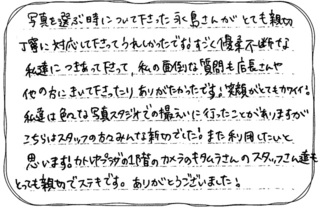 写真を選ぶ時についで下さった永島さんが とても親切
丁寧に対応して下さってうれしかったです。すごく優柔不断な
私達に つきあって下さって、私の面倒な質問も店長さんや
他の方にきいて下さったり ありがたかったです。笑顔がとてもカワイイ!
私達は色々な写真スタジオでの撮影に行ったことがありますが
こちらはスタッフの方々みんなな親切でした! また利用したいと
思います。カトレヤプラザの1階のカメラのキタムラさんの スタッフさん達も
とっても親切でステキです。ありがとうございました!